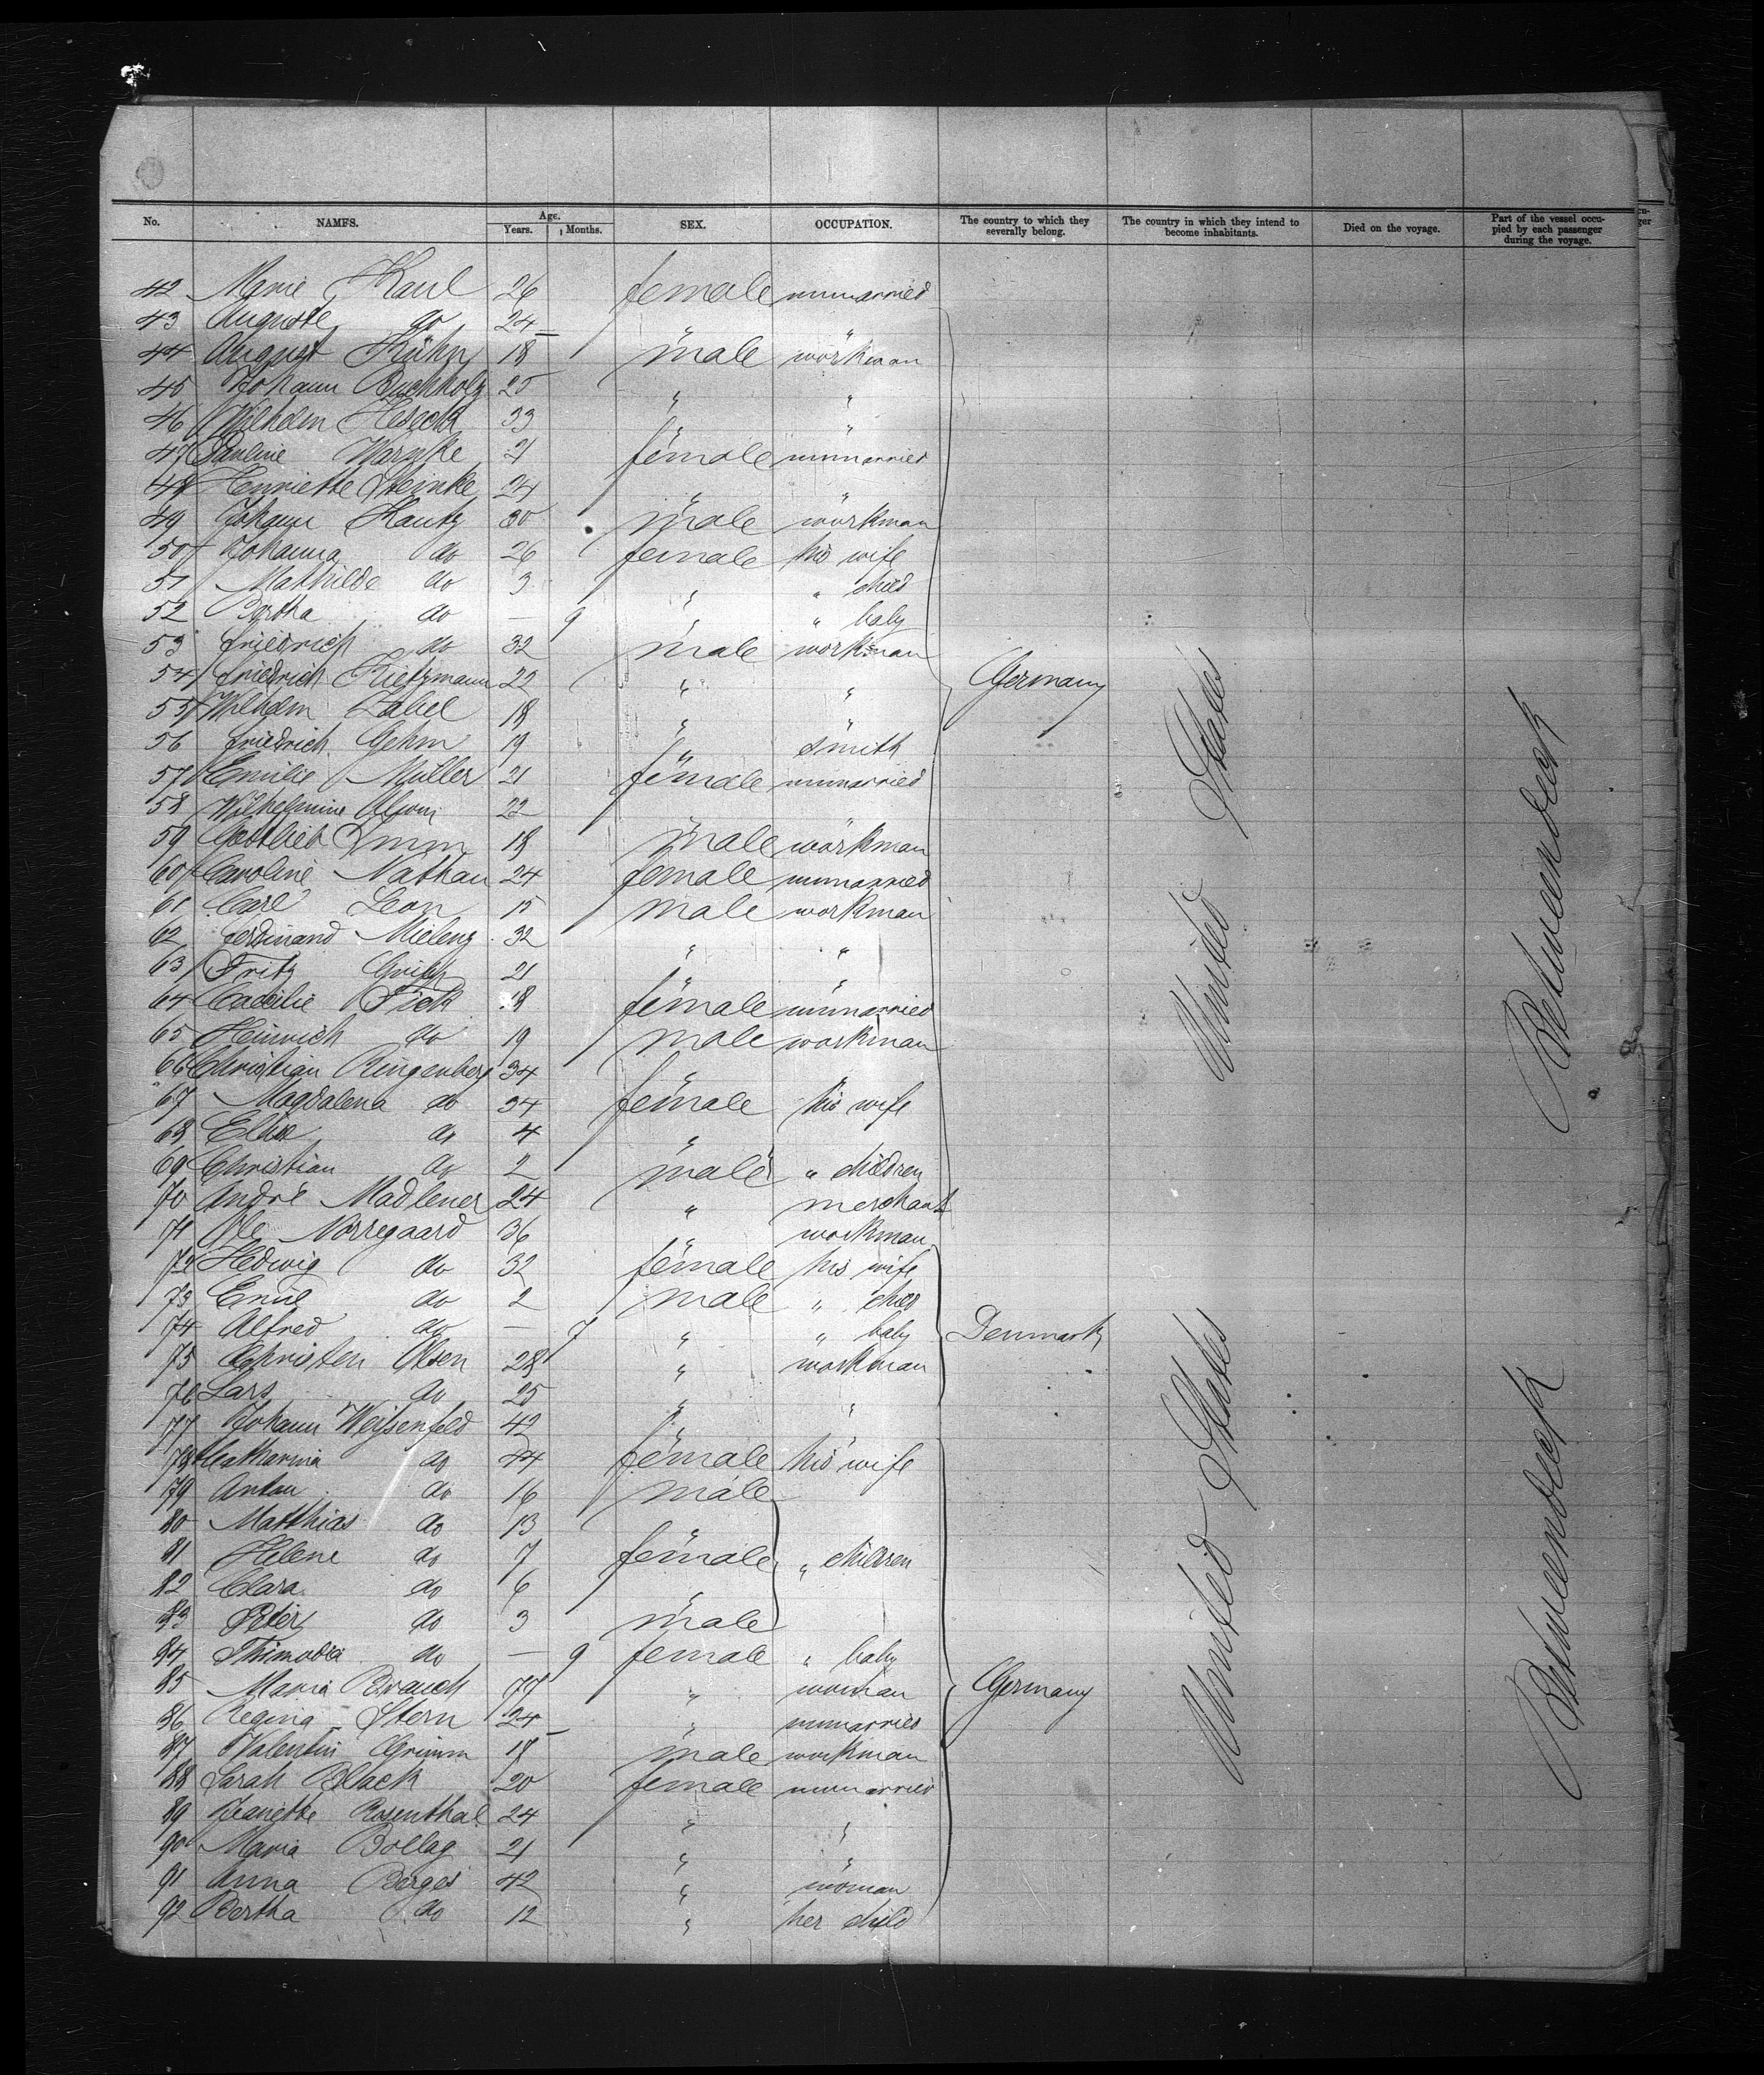 No. NAMES. Age. Years. Months. SEX. OCCUPATION. The country to which they severally belong. The country in which they intend to become inhabitants. Died on the voyage. Part of the vessel occupied by each passenger during the voyage.
42 Marie Karl 26 female unmarried
43 Auguste do 24 " "
44 August Kühn 18 male workman
45 Johann Buchholz 25 " "
46 Wilhelm Heseck 33 " "
47 Pauline Warnke 21 female unmarried
48 Henriette Steinke 24 " "
49 Johann Kautz 30 male workman
50 Johanna do 26 female his wife
51 Mathilde do 3 " " child
52 Bertha do — 9 " " baby
53 Friedrich do 32 male workman
54 Friedrich Kietzmann 22 " " Germany
55 Wilhelm Zabel 18 " "
56 Friedrich Gehm 19 " smith
57 Emilie Müller 21 female unmarried
58 Wilhelmine 22 " "
59 Gottlieb Imm 18 male workman
60 Caroline Nathan 24 female unmarried
61 Carl Leon 15 male workman
62 Ferdinand Mielenz 32 " "
63 Fritz Gripp 21 " "
64 Caecilie Fick 18 female unmarried
65 Heinrich do 19 male workman
66 Christian Ringenberg 34 " "
67 Magdalena do 34 female his wife
68 Elise do 4 "
69 Christian do 2 male " children
70 André Madlener 24 " merchant
71 Ole Norregaard 36 " workman
72 Hedwig do 32 female his wife
73 Emil do 2 male " child
74 Alfred do — 7 " " baby Denmark
75 Christen Olsen 28 " workman
76 Lars do 25 " "
77 Johann Weissenfeld 42 " "
78 Catharina do 44 female his wife
79 Anton do 16 male
80 Matthias do 13 "
81 Helene do 7 female " children
82 Clara do 6 "
83 Peter do 3 male
94 do — 9 female " baby
85 Maria Brauch 77 " woman Germany
86 Regina Stern 24 " unmarried
87 Valentin Grimm 18 male workman
88 Sarah Black 20 female unmarried
89 Jeanette Rosenthal 24 " "
90 Maria Bollag 21 " "
91 Anna Barges 42 " woman
92 Bertha do 12 " her child
United States
Betweendeck
United States
Betweendeck